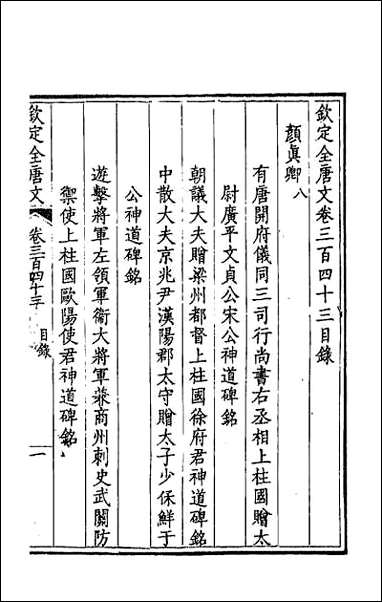 欽定全唐文卷三百四十三目錄
顏真卿八
有唐開府儀同三司行尚書右丞相上柱國贈太
尉廣平文貞公宋公神道碑銘
朝議大夫贈梁州都督上柱國徐府君神道碑銘
中散大夫京兆尹漢陽郡太守贈太子少保鮮于
公神道碑銘
遊擊將軍左領軍衞大將軍兼商州刺史武關防
禦使上柱國歐陽使君神道碑銘
欽定全唐文 卷三百四十三 目錄 一